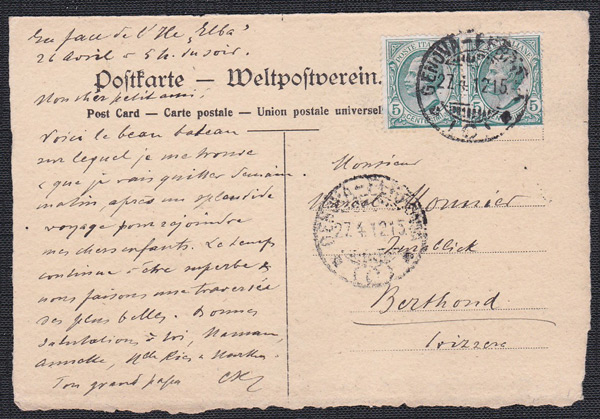 En face de l'Ile "Elba"
26 Avril à 5 h. du soir.
Postkarte — Weltpostverein.
Post Card — Carte postale — Union postale universel
Mon cher petit ami,
Voici le beau bateau
sur lequel je me trouve
& que je vais quitter demain
matin après un splendide
voyage pour rejoindre
mes chers enfants. Le temps
continue à être superbe &
nous faisons une traversée
des plus belles. Bonnes
salutations à toi, Maman,
Annelie, Mlle
Ton grand papa
POSTE ITAL
5
CENT
5
GENOVA
27.4.1215
Monsieur
Monnier
GENOVA
27.4.1215
Berthoud
Svizzera